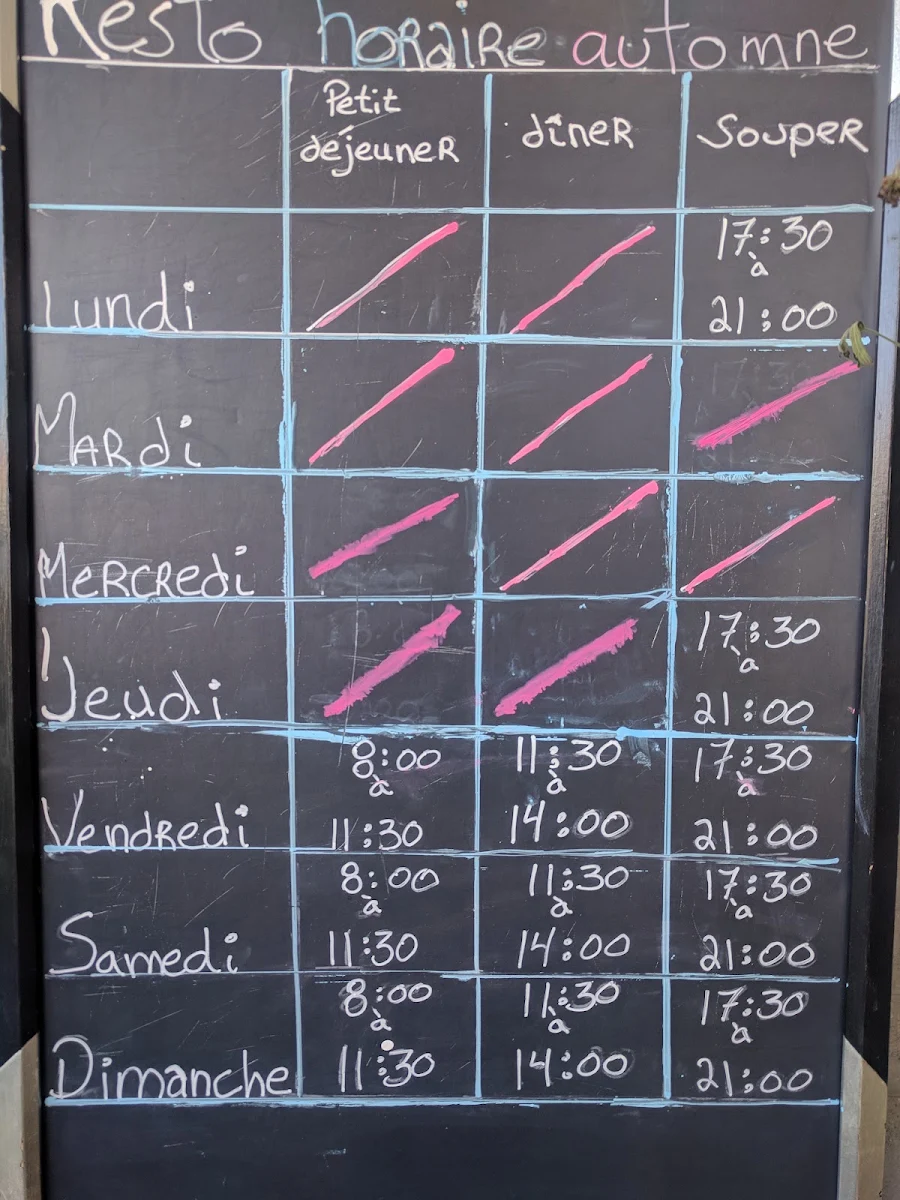 Resto horaire automne
Petit
déjeuner
dîner
Souper
Lundi
17:30
à
21:00
Mardi
Mercredi
Jeudi
17:30
à
21:00
Vendredi
8:00
à
11:30
11:30
à
14:00
17:30
à
21:00
Samedi
8:00
à
11:30
11:30
à
14:00
17:30
à
21:00
Dimanche
8:00
à
11:30
11:30
à
14:00
17:30
à
21:00